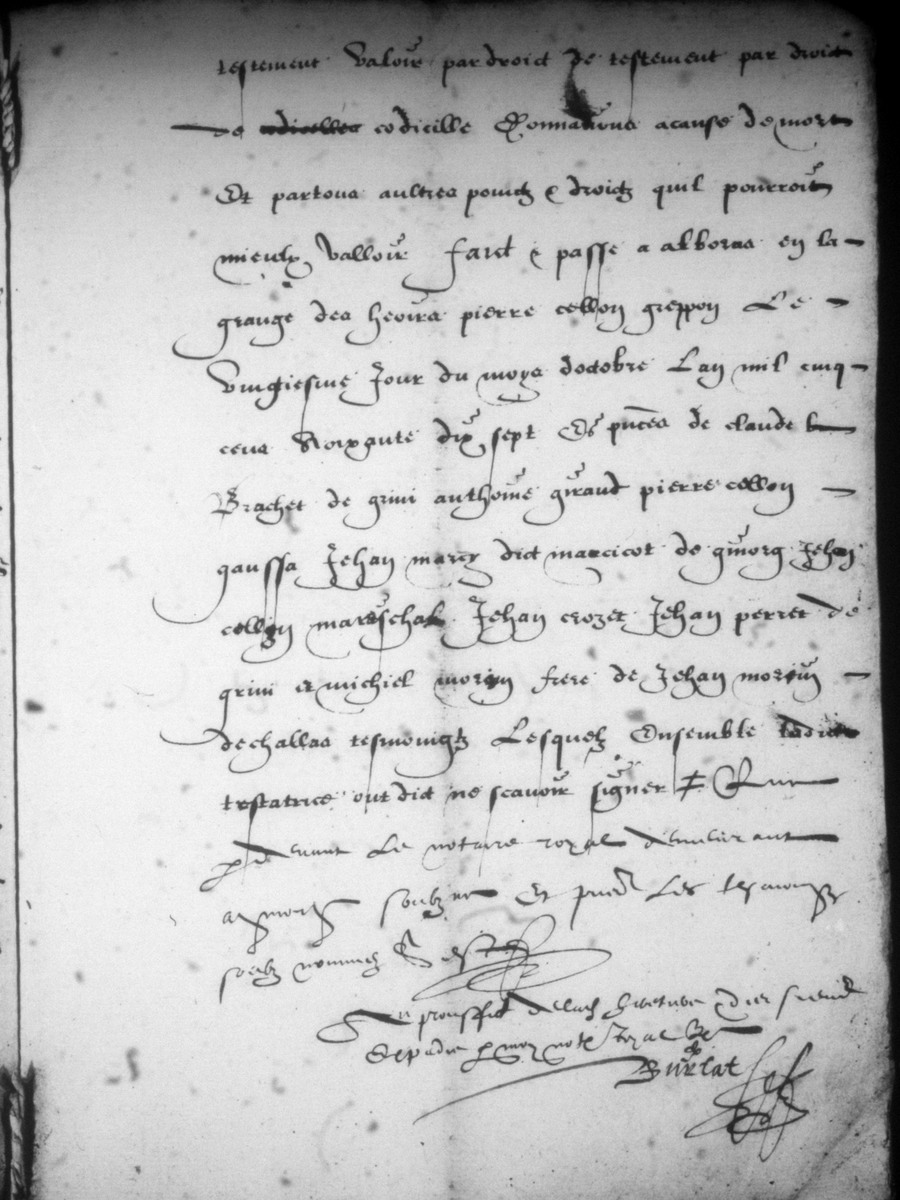 testement valoir par droict de testement par droict
de codicille donnations a cause de mort
Et par tous aultres poinctz & droictz quil pourroit
mieulx valloir faict & passé a alboras en la
grange des heoirs pierre collon greppon Le
vingiesme Jour du moys doctobre Lan mil cinq
cens soixante dix sept Es pnces de claude
Brachet de grini anthoine giraud pierre collon
gaussa Jehan marcy dict marcicot de givorg Jehan
collon mareschal Jehan crozet Jehan perret de
grini et michiel morin frere de Jehan morin
de challas tesmoingtz Lesquelz Ensemble ladicte
testatrice ont dict ne scavoir signer
p devant Le notaire royal
soubz Et Les tesmoingz
soubz nommez
En prouffit de
Expedie p moy note royal
Burlat